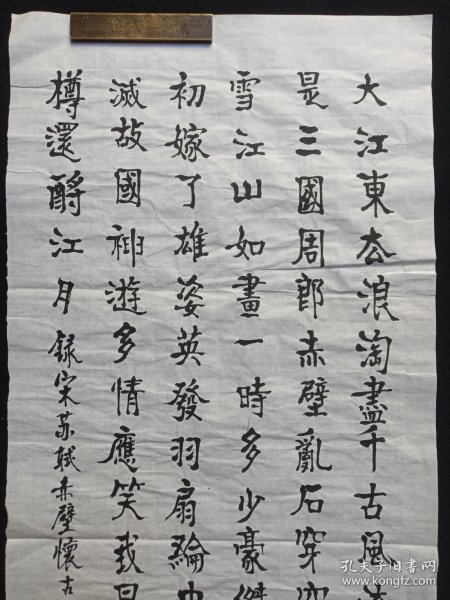 大江東去浪淘盡千古風流
是三國周郎赤壁亂石穿空
雪江山如畫一時多少豪傑
初嫁了雄姿英發羽扇綸巾
滅故國神遊多情應笑我早
樽還酹江月録宋苏軾赤壁懷古
孔夫子旧书网